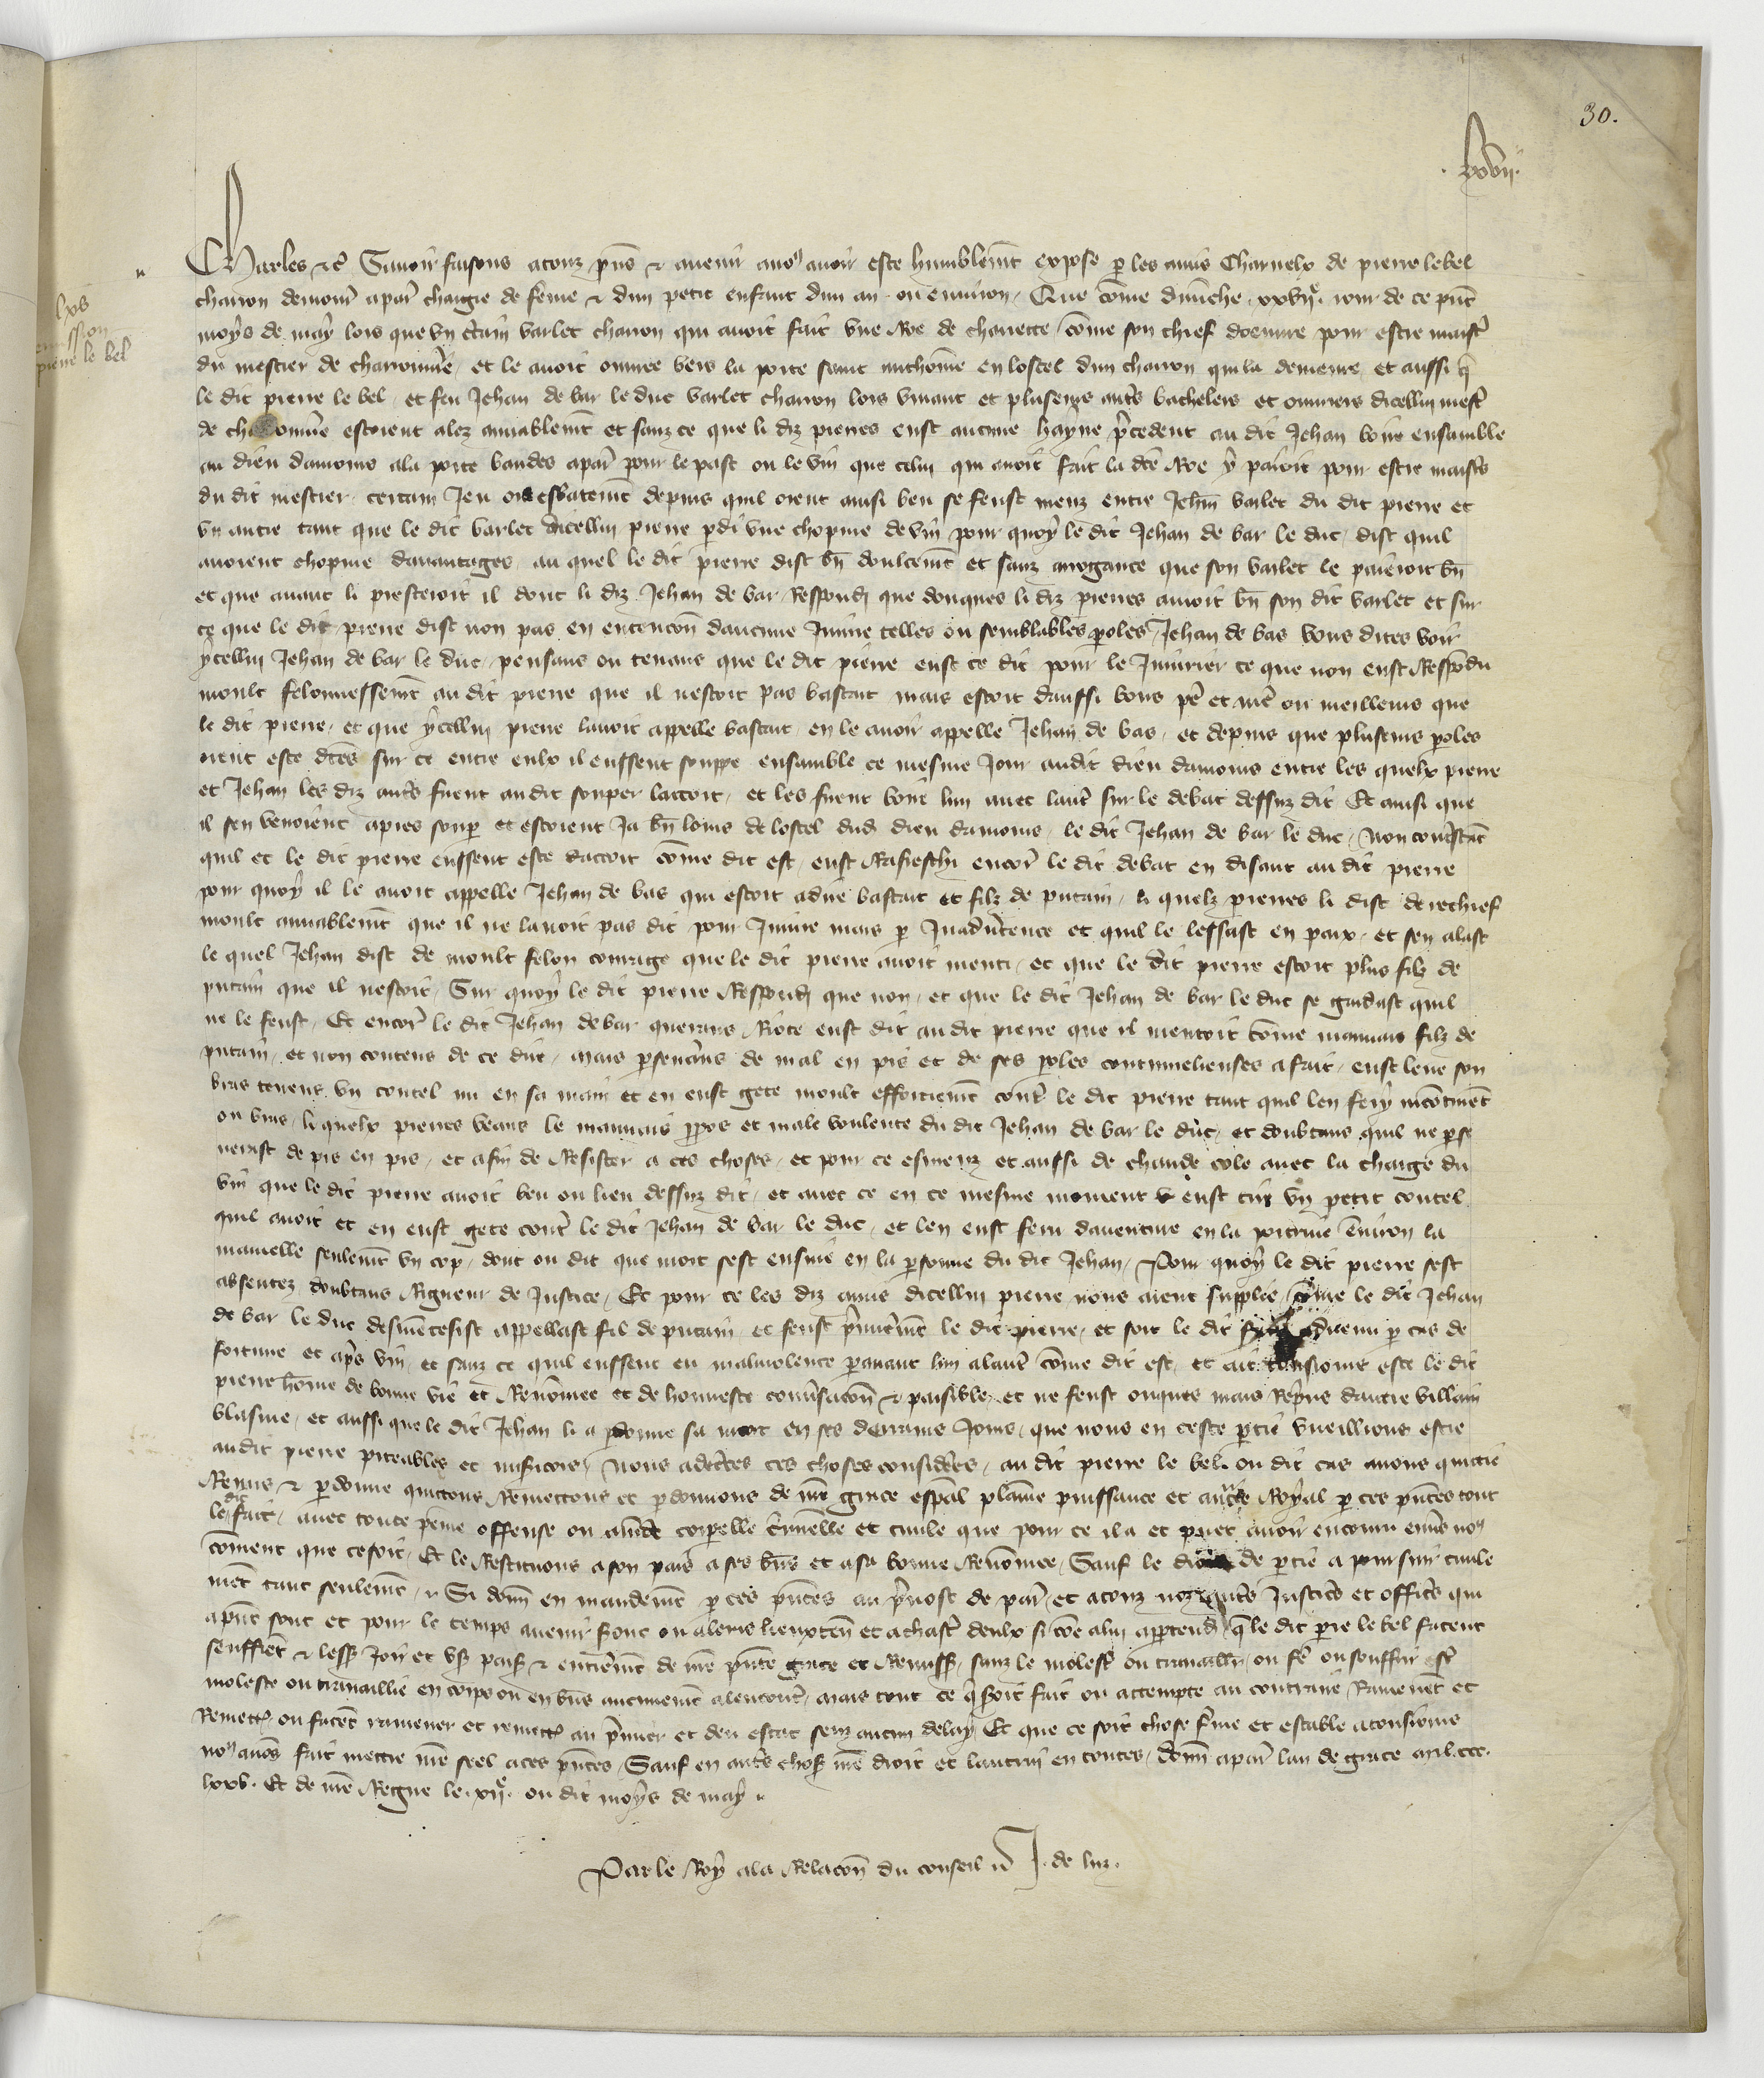 30.
.xxvij.
lxv
Remission
pierre le bel
Charles etc̃ Sauoir faisons a touz p̃ns & auenir a nous auoir este humblem̃t expose p les amis Charnelx de pierre le bel
charron demour̃ a par̃ chargie de fẽme & dun petit enfant dun an ou enuiron. Que cõme dimẽche xxvijᵉ. iour de ce p̃nt
moys de may lors que vn c̃tain varlet charron qui auoit fait vne Roe de charrette cõme son chief doeuure pour estre maistr̃
du mestier de charronn̂ie et le auoit ouuree vers la porte saint anthoine en lostel dun charron qui la demeure et aussi q̃
le dit pierre le bel et feu Jehan de bar le duc varlet charron lors viuant et pluseurs aut̃s bachelers et ouuriers dicellui mest̃
de charronn̂ie estoient alez amiablem̃t et sanz ce que li diz pierres eust aucune hayne p̃cedent au dit Jehan boire ensamble
au dieu damours a la porte baudes a par̃ pour le past ou le vin que celui qui auoit fait la dc̃e Roe y paioit pour estre maistr̃s
du dit mestier. certain Jeu ou esbatem̃t depuis quil orent ainsi beu se feust meuz entre Jeh̃n varlet du dit pierre et
vn autre tant que le dit varlet dicellui pierre pdi vne chopine de vin pour quoy le dit Jehan de bar le duc dist quil
auoient chopine dauantages au quel le dit pierre dist bñ doulcem̃t et sanz arrogance que son varlet le paieroit bñ
et que auant li presteroit il dont li diz Jehan de bar Respondi que donques li diz pierres auoit bñ son dit varlet et sur
ce que le dit pierre dist non pas en entencoñ daucune Iniure telles ou semblables poles Jehan de bas vous dites voir
ycellui Jehan de bar le duc pensans ou tenans que le dit pierre eust ce dit pour le Iniurier ce que non eust Respõdu
moult felonnessem̃t au dit pierre que il nestoit pas bastart mais estoit daussi bons pẽ et mẽ ou meilleurs que
le dit pierre et que ycellui pierre lauoit appelle bastart en le auoir appelle Jehan de bas et depuis que pluseurs poles
orent este dc̃es sur ce entre eulx il eussent souppe ensamble ce mesme Jour au dit dieu damours entre les quelx pierre
et Jehan les diz aut̃s firent au dit souper laccort et les firent boire lun auec laut̃ sur le debat dessuz dit Et ainsi que
il sen venoient apres soup̃ et estoient Ja bñ loins de lostel dud dieu damours le dit Jehan de bar le duc Non cont̃stãt
quil et le dit pierre eussent este daccort cõme dit est eust Rafreschi encor̃ le dit debat en disant au dit pierre
pour quoy il le auoit appelle Jehan de bas qui estoit a dire bastart et filz de putain li quelz pierres li dist de rechief
moult amiablem̃t que il ne lauoit pas dit pour Iniure mais p Inadũtence et quil le lessast en paix et sen alast
le quel Jehan dist de moult felon courage que le dit pierre auoit menti et que le dit pierre estoit plus filz de
putain que il nestoit. Sur quoy le dit pierre Respondi que non et que le dit Jehan de bar le duc se gardast quil
ne le feust Et encor̃ le dit Jehan de bar querans Riote eust dit au dit pierre que il mentoit cõme mauuais filz de
putain et non contens de ce dire mais pseuerãs de mal en pis et de ses poles contumelieuses a fait eust leue son
bras tenens vn coutel nu en sa main et en eust gete moult efforciem̃t contr̃ le dit pierre tant quil len fery incõtinẽt
ou bras li quelx pierres veans le mauuais ppos et male voulente du dit Jehan de bar le duc et doubtans quil ne pse
uerast de pis en pis et afin de Resister a ces choses et pour ce esmeuz et aussi de chaude cole auec la charge du
vin que le dit pierre auoit beu ou lieu dessuz dit et auec ce en ce mesme moment eust tire vn petit coutel
quil auoit et en eust gete contr̃ le dit Jehan de bar le duc et len eust feru dauenture en la poitrine enuiron la
mamelle seulem̃t vn cop dont on dit que mort sest ensuie en la psonne du dit Jehan Pour quoy le dit pierre sest
absentez doubtans Rigueur de Justice Et pour ce les diz amis dicellui pierre nous aient supplie cõme le dit Jehan
de bar le duc desmẽtesist appellast fil de putain et ferist p̃mierem̃t le dit pierre et soit le dit fait aduenu p cas de
fortune et ap̃s vin et sanz ce quil eussent eu maliuolence p auant lun a laut̃ cõme dit est et ait tousiours este le dit
pierre hõme de bonne vie et Renõmee et de honneste conũsacoñ & paisible et ne feust onques mais Rep̃ns dautre villain
blasme et aussi que le dit Jehan li a pdonne sa mort en ses derrains Jours que nous en ceste ptie vueillions estre
au dit pierre piteables et mis̃icors Nous adc̃tes ces choses considerees au dit pierre le bel ou dit cas auons quittie
Remis & pdonne quittons Remettons et pdonnons de nr̃e grace esp̃al plaine puissance et auct̃te Royal p ces p̃ntes tout
le dit fait auec toute peine offense ou amẽde corporelle c̃minelle et ciuile que pour ce il a et puet auoir encouru enũs noꝰ
cõment que ce soit Et le Restituons a son pais a ses bñs et a sa bonne Renõmee Sauf le droit de ptie a poursuir ciuile
mẽt tant seulem̃t Si donñ en mandem̃t p ces p̃ntes au p̃uost de par̃ et a touz noz aut̃s Justic̃s et offic̃s qui
a p̃nt sont et pour le temps auenir seront ou a leurs lieuxteñ et a chasc̃ deulx si cõe a lui apptendr̃ q̃ le dit pierre le bel facent
seuffrẽt & less̃ Joir et vs̃ pais̃ & entierem̃t de nr̃e p̃nte grace et Remiss̃ sanz le molest̃ ou trauaillier ou fẽ ou souffrir estr̃
moleste ou trauaillie en corps ou en bñs aucunem̃t alencontr̃ mais tout ce q̃ seroit fait ou attempte au contraire Ramenẽt et
Remett̃ ou facẽt ramener et remett̃ au p̃mier et deu estat senz aucun delay Et que ce soit chose ferme et estable a tousiours
noꝰ auõs fait mettre nr̃e seel a ces p̃ntes Sauf en aut̃s chos̃ nr̃e droit et lautrui en toutes donñ a par̃ lan de grace mil.ccc.
lxxv. Et de nr̃e Regne le .xijᵉ. ou dit moys de may
Par le Roy a la Relacoñ du conseil J. de luz.